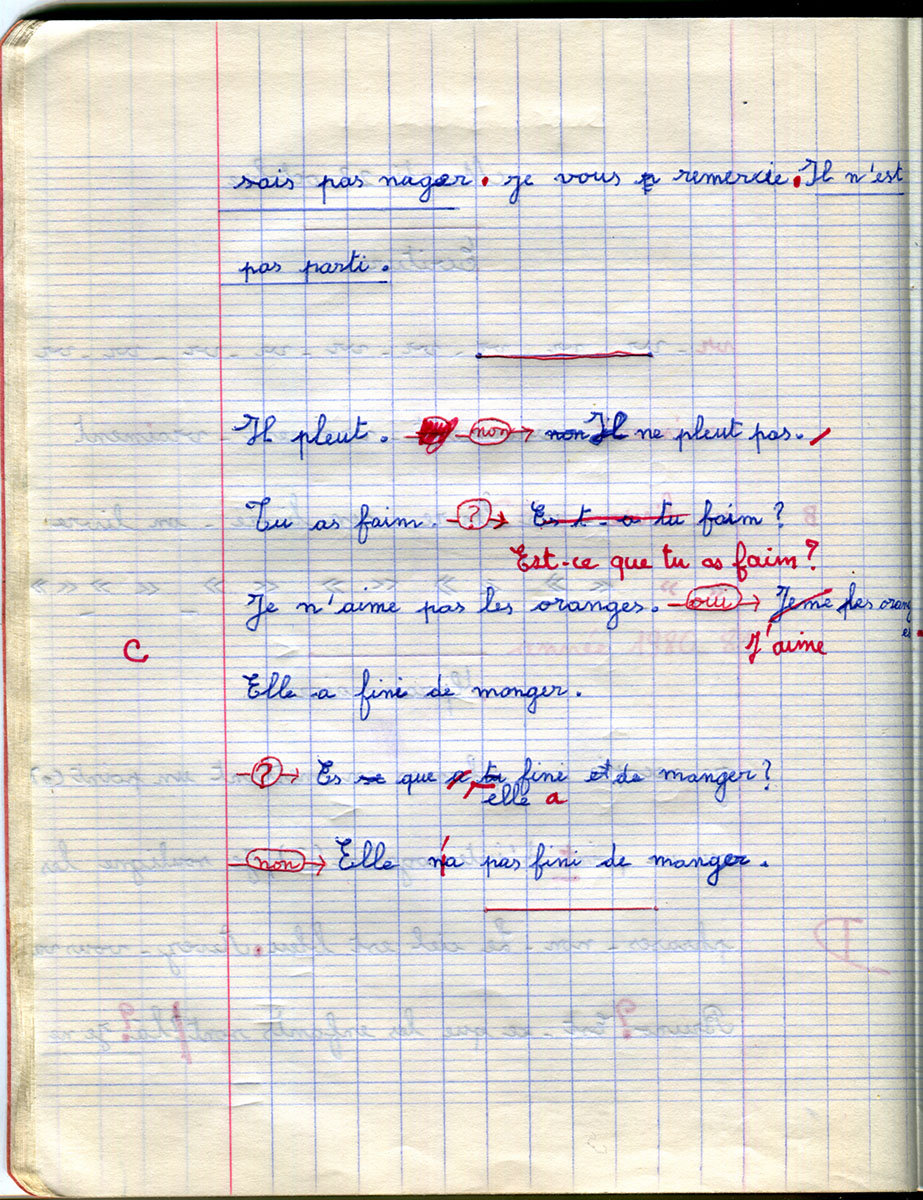 sais pas nager. je vous remercie. Il n'est
pas parti.
Il pleut. non → non Il ne pleut pas.
Tu as faim. ? → Es t - a tu faim ?
Est-ce que tu as faim ?
Je n'aime pas les oranges. oui → Jeme les orang
es.
J'aime
C
Elle a fini de manger.
? → Es se que tu fini et de manger ?
elle a
non → Elle n'a pas fini de manger.